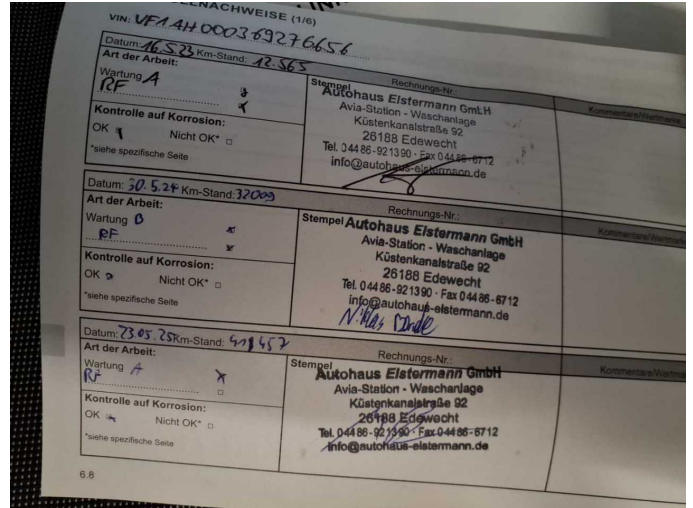 VIN: VF1AH000369276656
Datum: 16.5.23 Km-Stand: 12.565
Art der Arbeit:
Wartung A
RF
Kontrolle auf Korrosion:
OK Nicht OK*
*siehe spezifische Seite
Stempel Rechnungs-Nr.: Kommentare/Wertmarke
Autohaus Elstermann GmbH
Avia-Station - Waschanlage
Küstenkanalstraße 92
26188 Edewecht
Tel. 04486-921390 - Fax 04486-6712
info@autohaus-elstermann.de
Datum: 30.5.24 Km-Stand: 32009
Art der Arbeit:
Wartung B
RF
Kontrolle auf Korrosion:
OK Nicht OK*
*siehe spezifische Seite
Rechnungs-Nr.: Kommentare/Wertmarke
Stempel Autohaus Elstermann GmbH
Avia-Station - Waschanlage
Küstenkanalstraße 92
26188 Edewecht
Tel. 04486-921390 · Fax 04486-6712
info@autohaus-elstermann.de
Datum: 23.05.25 Km-Stand:
Art der Arbeit:
Wartung A
RF
Kontrolle auf Korrosion:
OK Nicht OK*
*siehe spezifische Seite
Rechnungs-Nr.: Kommentare/Wertma
Stempel
Autohaus Elstermann GmbH
Avia-Station - Waschanlage
Küstenkanalstraße 92
26188 Edewecht
Tel. 04486-921390 · Fax 04486-6712
info@autohaus-elstermann.de
6.8